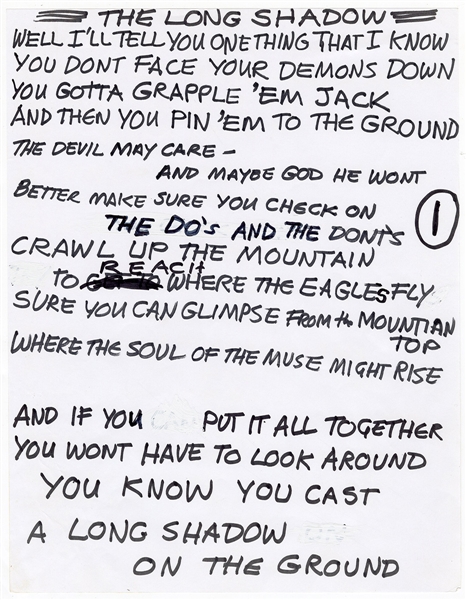 THE LONG SHADOW
WELL I'LL TELL YOU ONE THING THAT I KNOW
YOU DONT FACE YOUR DEMONS DOWN
YOU GOTTA GRAPPLE 'EM JACK
AND THEN YOU PIN 'EM TO THE GROUND
THE DEVIL MAY CARE –
AND MAYBE GOD HE WONT
BETTER MAKE SURE YOU CHECK ON
THE DO'S AND THE DONT'S
1
CRAWL UP THE MOUNTAIN
REACH
TO WHERE THE EAGLES FLY
SURE YOU CAN GLIMPSE FROM the MOUNTIAN
TOP
WHERE THE SOUL OF THE MUSE MIGHT RISE
AND IF YOU PUT IT ALL TOGETHER
YOU WONT HAVE TO LOOK AROUND
YOU KNOW YOU CAST
A LONG SHADOW
ON THE GROUND